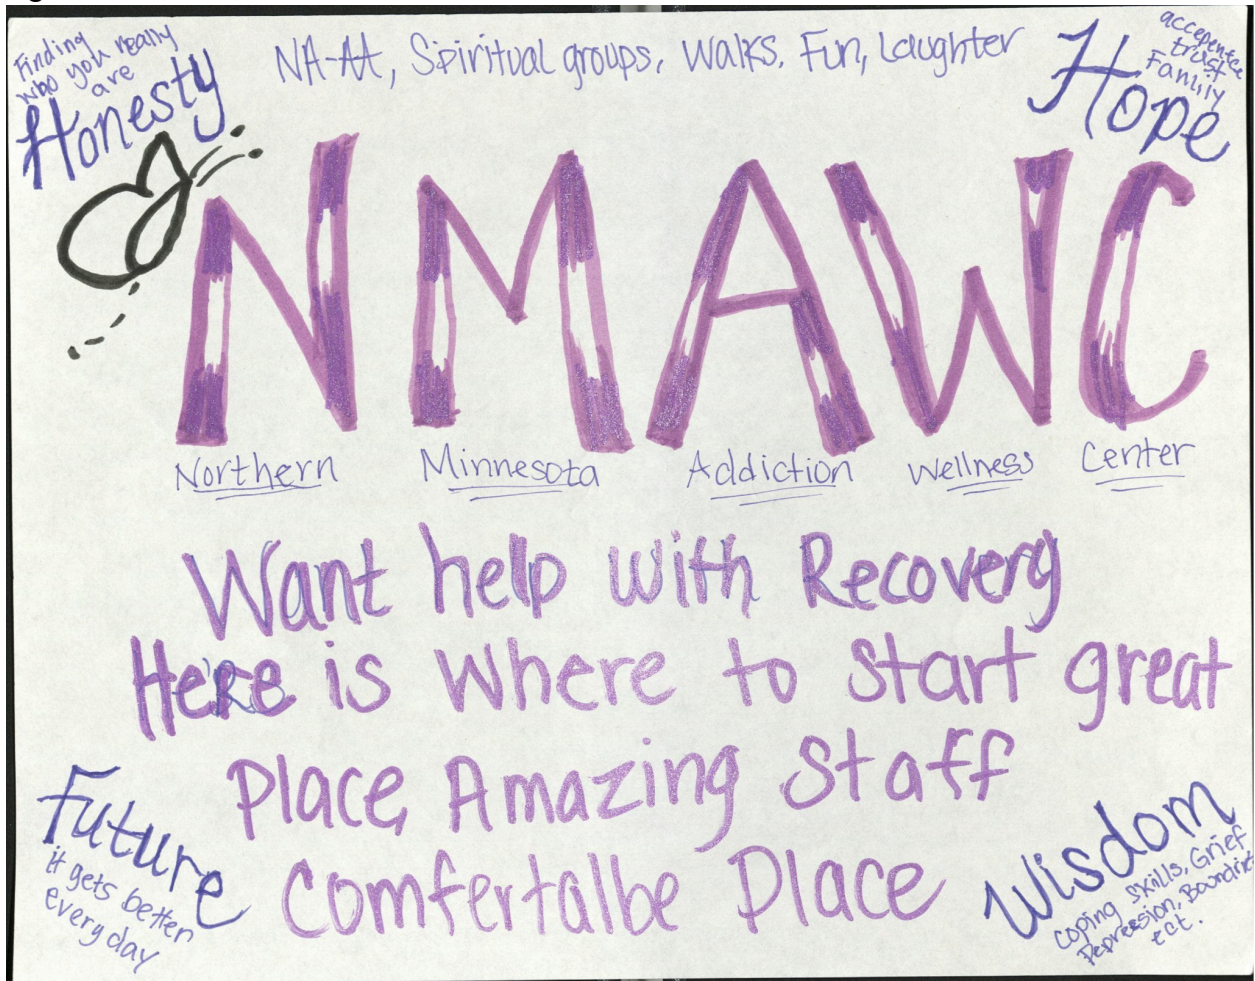 Finding
who you really
are
Honesty
NA-AA, Spiritual groups, Walks. Fun, Laughter
accepentce
trust
Family
Hope
NMAWC
Northern Minnesota Addiction Wellness Center
Want help with Recovery
Here is Where to Start great
Place, Amazing Staff
Comfertalbe Place
Future
it gets better
every day
Wisdom
Coping skills, Grief
Depression, Boundries
ect.